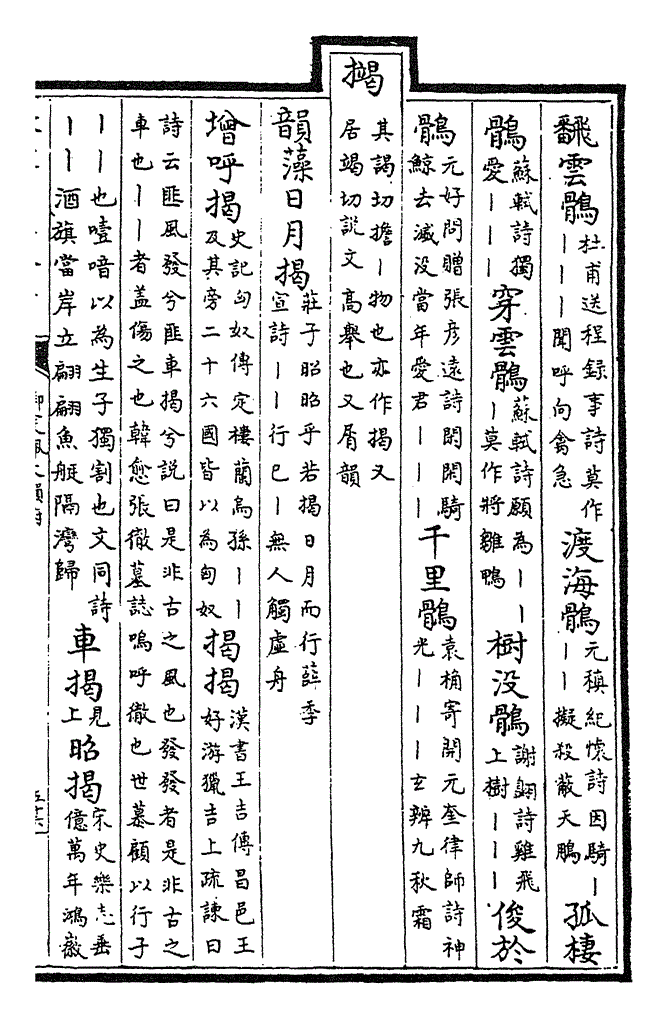 飜雲鶻杜甫送程録事詩莫作
｜｜｜聞呼向禽急渡海鶻元稹紀懷詩因騎｜
｜｜擬殺蔽天鵰孤棲
鶻蘇軾詩獨
愛｜｜｜穿雲鶻蘇軾詩願為｜｜
｜莫作將雛鴨樹没鶻謝翺詩雞飛
上樹｜｜｜俊於
鶻元好問贈張彦遠詩閑閑騎
鯨去滅没當年愛君｜｜｜千里鶻袁桷寄開元奎律師詩神
光｜｜｜玄辨九秋霜
揭其謁切擔｜物也亦作揭又
居竭切説文高舉也又屑韻
韻藻日月揭莊子昭昭乎若揭日月而行薛季
宣詩｜｜行已｜無人觸虚舟
增呼揭史記匈奴傳定樓蘭烏孫｜｜
及其旁二十六國皆以為匈奴揭揭漢書王吉傳昌邑王
好游獵吉上疏諫曰
詩云匪風發兮匪車揭兮説曰是非古之風也發發者是非古之
車也｜｜者盖傷之也韓愈張徹墓誌嗚呼徹也世慕顧以行子
｜｜也噎喑以為生子獨割也文同詩
｜｜酒旗當岸立翩翩魚艇隔灣歸車揭見
上昭揭宋史樂志垂
億萬年鴻徽